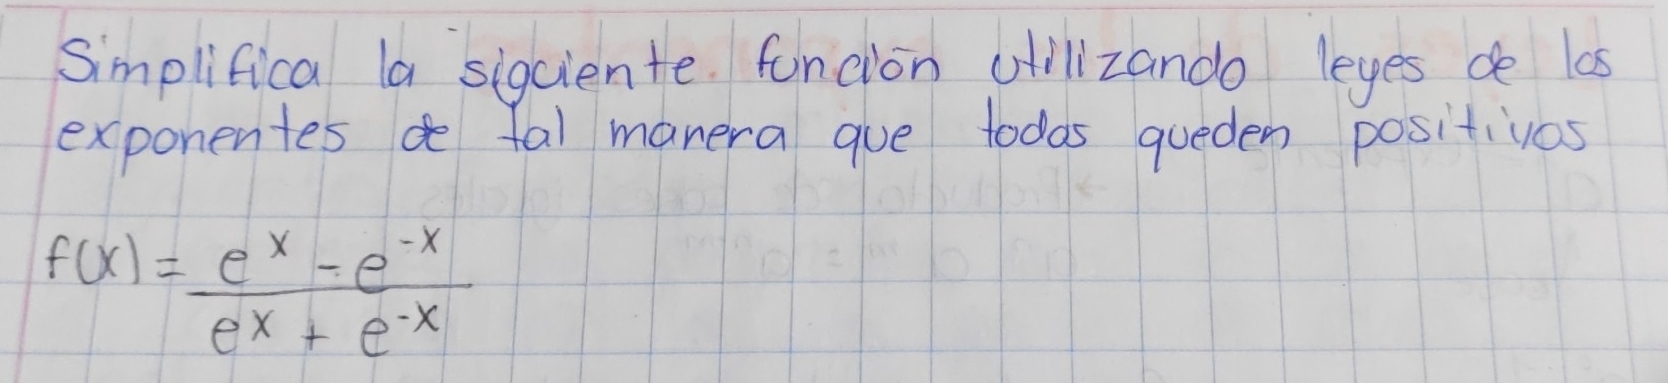 Simplifica la siguiente función utilizando leyes de los
exponentes de tal manera que todos queden positivos
f(x) = e^x - e^-x
e^x + e^-x